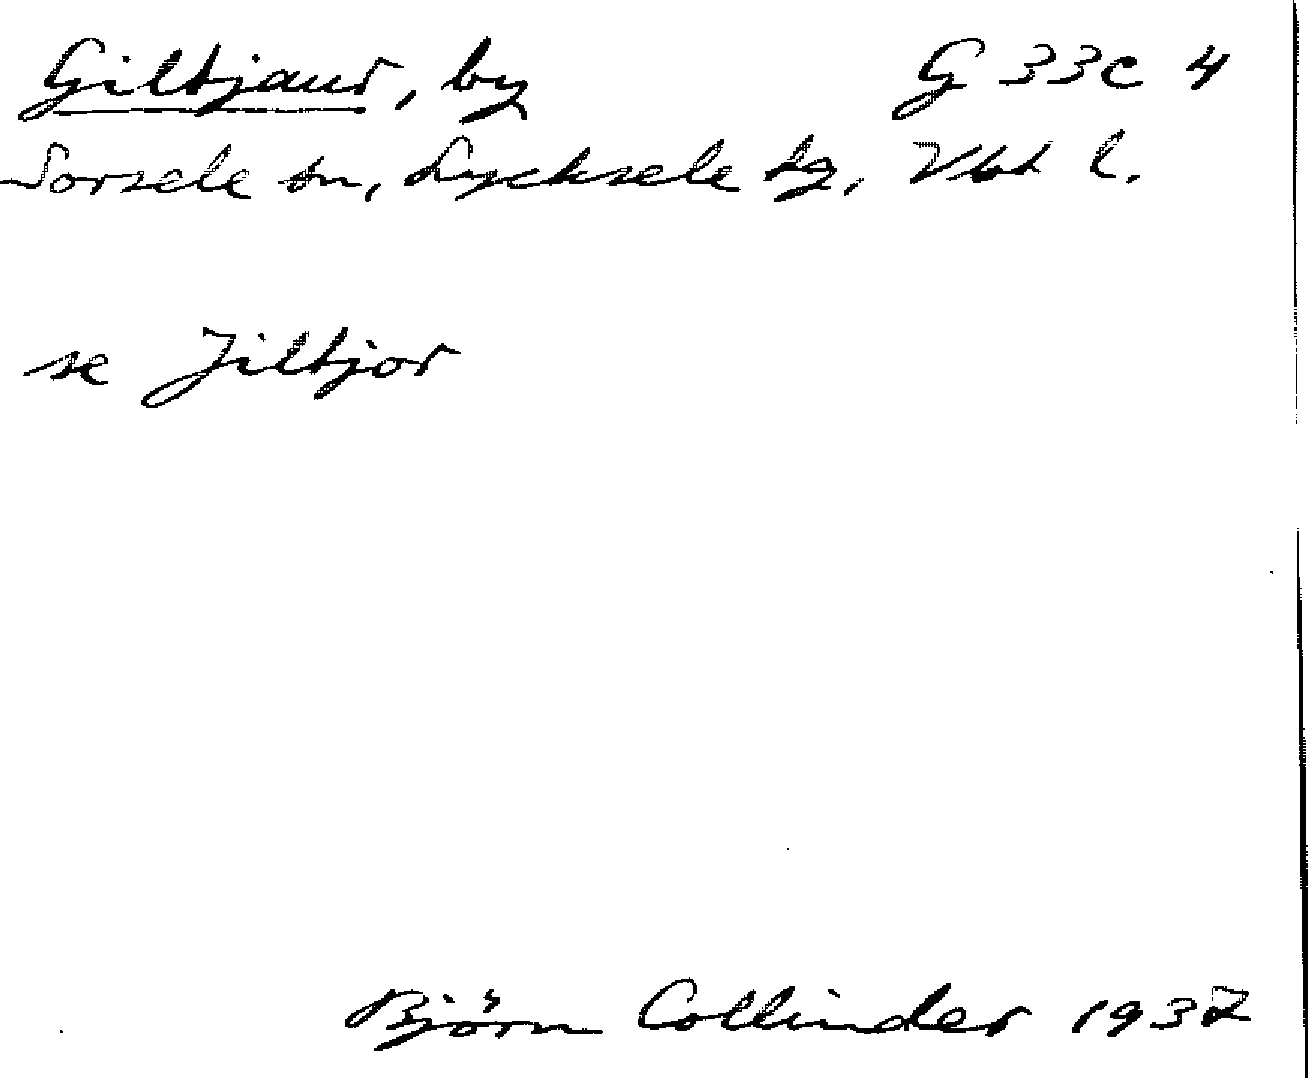 Giltjaur, by G 33c 4
Sorsele sn, Lycksele tg, Vbt l.
se Jiltjor
Björn Collinder 1937